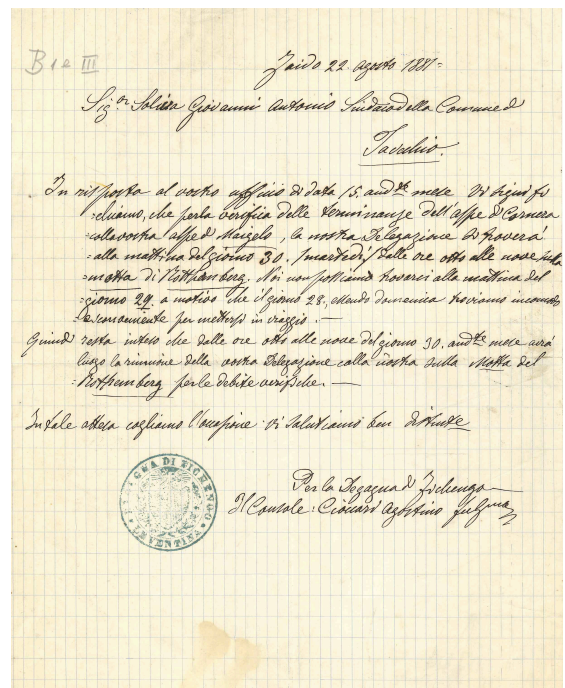 B 1 e III
Faido 22. agosto 1881=
Sig.or Giovanni Antonio Sindaco della Comune d
In risposta al vostro ufficio di data 15. and.te mese Vi signifi
=chiamo, che per la verifica delle terminanze dell'alpe di Cornera
=colla vostra alpe d Maigels, la nostra Delegazione si troverà
=alla mattina del giorno 30. /martedi/ dalle ore otto alle nove sulla
=motta di Rothemberg. Noi non possiamo trovarsi alla mattina del
=giorno 29. a motivo che il giorno 28. essendo domenica troviamo
per mettersi in viaggio.—
Quindi resta inteso che dalle ore otto alle nove del giorno 30. and.te mese avrà
luogo la riunione della vostra Delegazione colla nostra sulla Motta del
=Rothemberg per le debite verifiche.—
In tale attesa cogliamo l'occasione vi salutiamo ben distinte
Per la Degagna d Fichengo
Il Console: Agostino
DEGAGNA DI FICHENGO
LEVENTINA